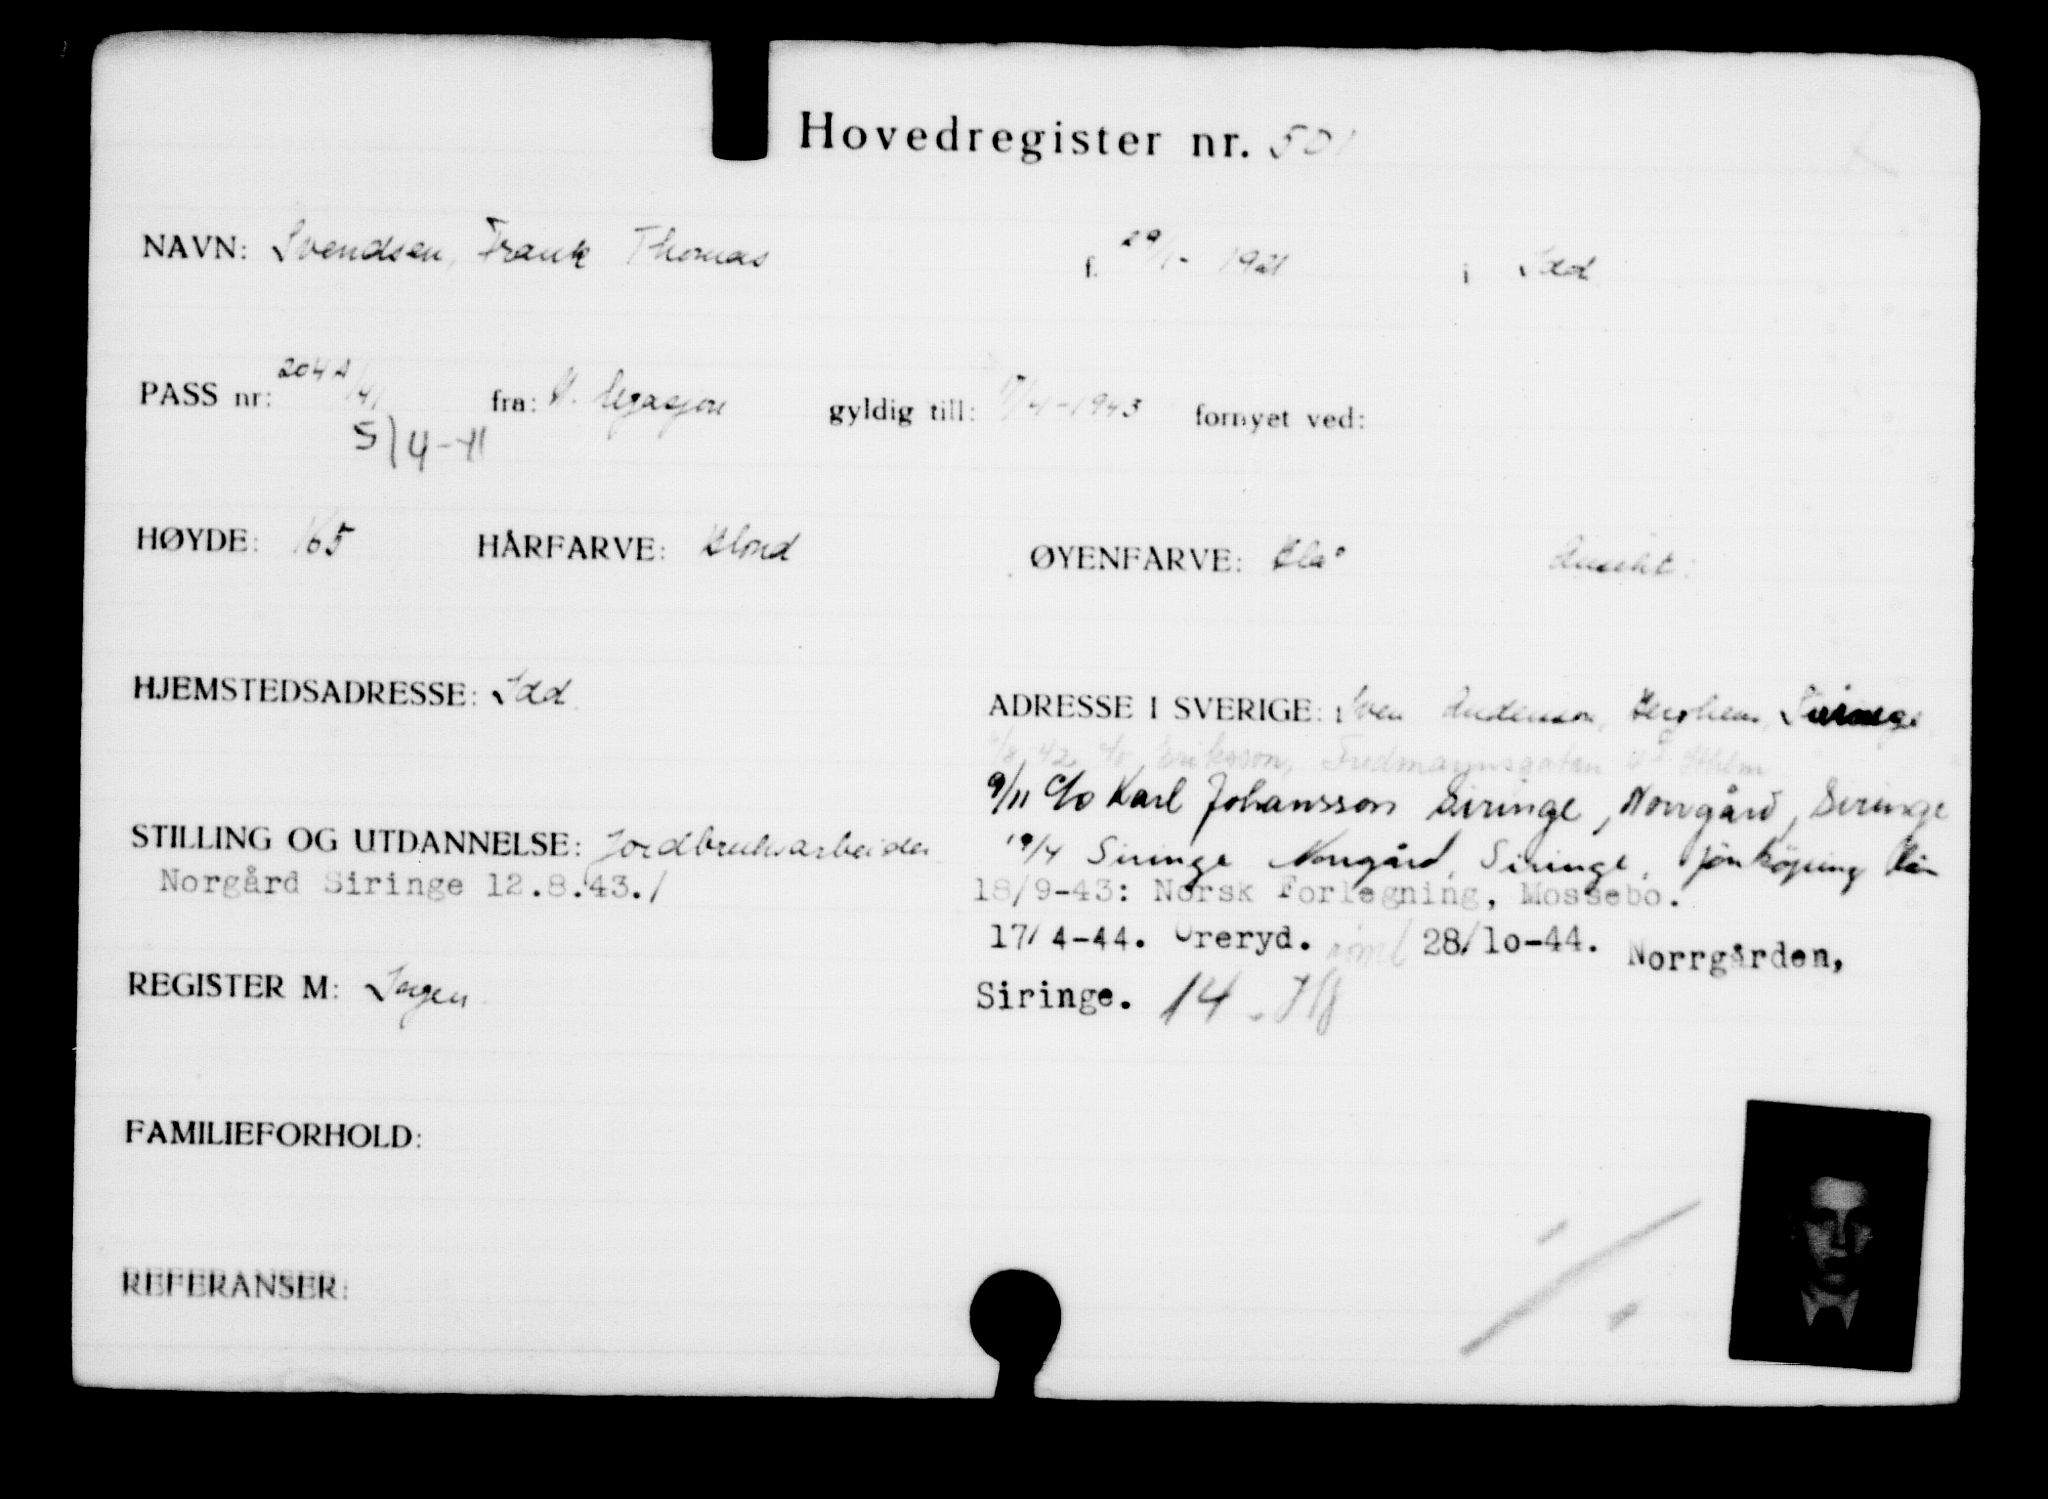 Hovedregister nr. 501
NAVN: Svendsen, Frank Thomas f. 29/1- 1921 i Idd
PASS nr: 204A/41 fra: N. legasjon gyldig till: 17/4-1943 fornyet ved:
5/4-41
HØYDE: 165 HÅRFARVE: Blond ØYENFARVE: Blå Ansikt:
HJEMSTEDSADRESSE: Idd.
ADRESSE I SVERIGE: Sven Anderson, Berghem, Siringe
/8 42 c/o Eriksson, Fredmannsgatan Sthlm
9/11 c/o Karl Johansson Siringe, Norrgård, Siringe
STILLING OG UTDANNELSE: Jordbruksarbeider
19/4 Siringe Norrgård, Siringe, Jönköping län
Norgård Siringe 12.8.43./
18/9-43: Norsk Forlegning, Mossebo.
17/4-44. Öreryd. 28/10-44. Norrgården,
REGISTER M: Ingen
Siringe. 14.
FAMILIEFORHOLD:
REFERANSER: